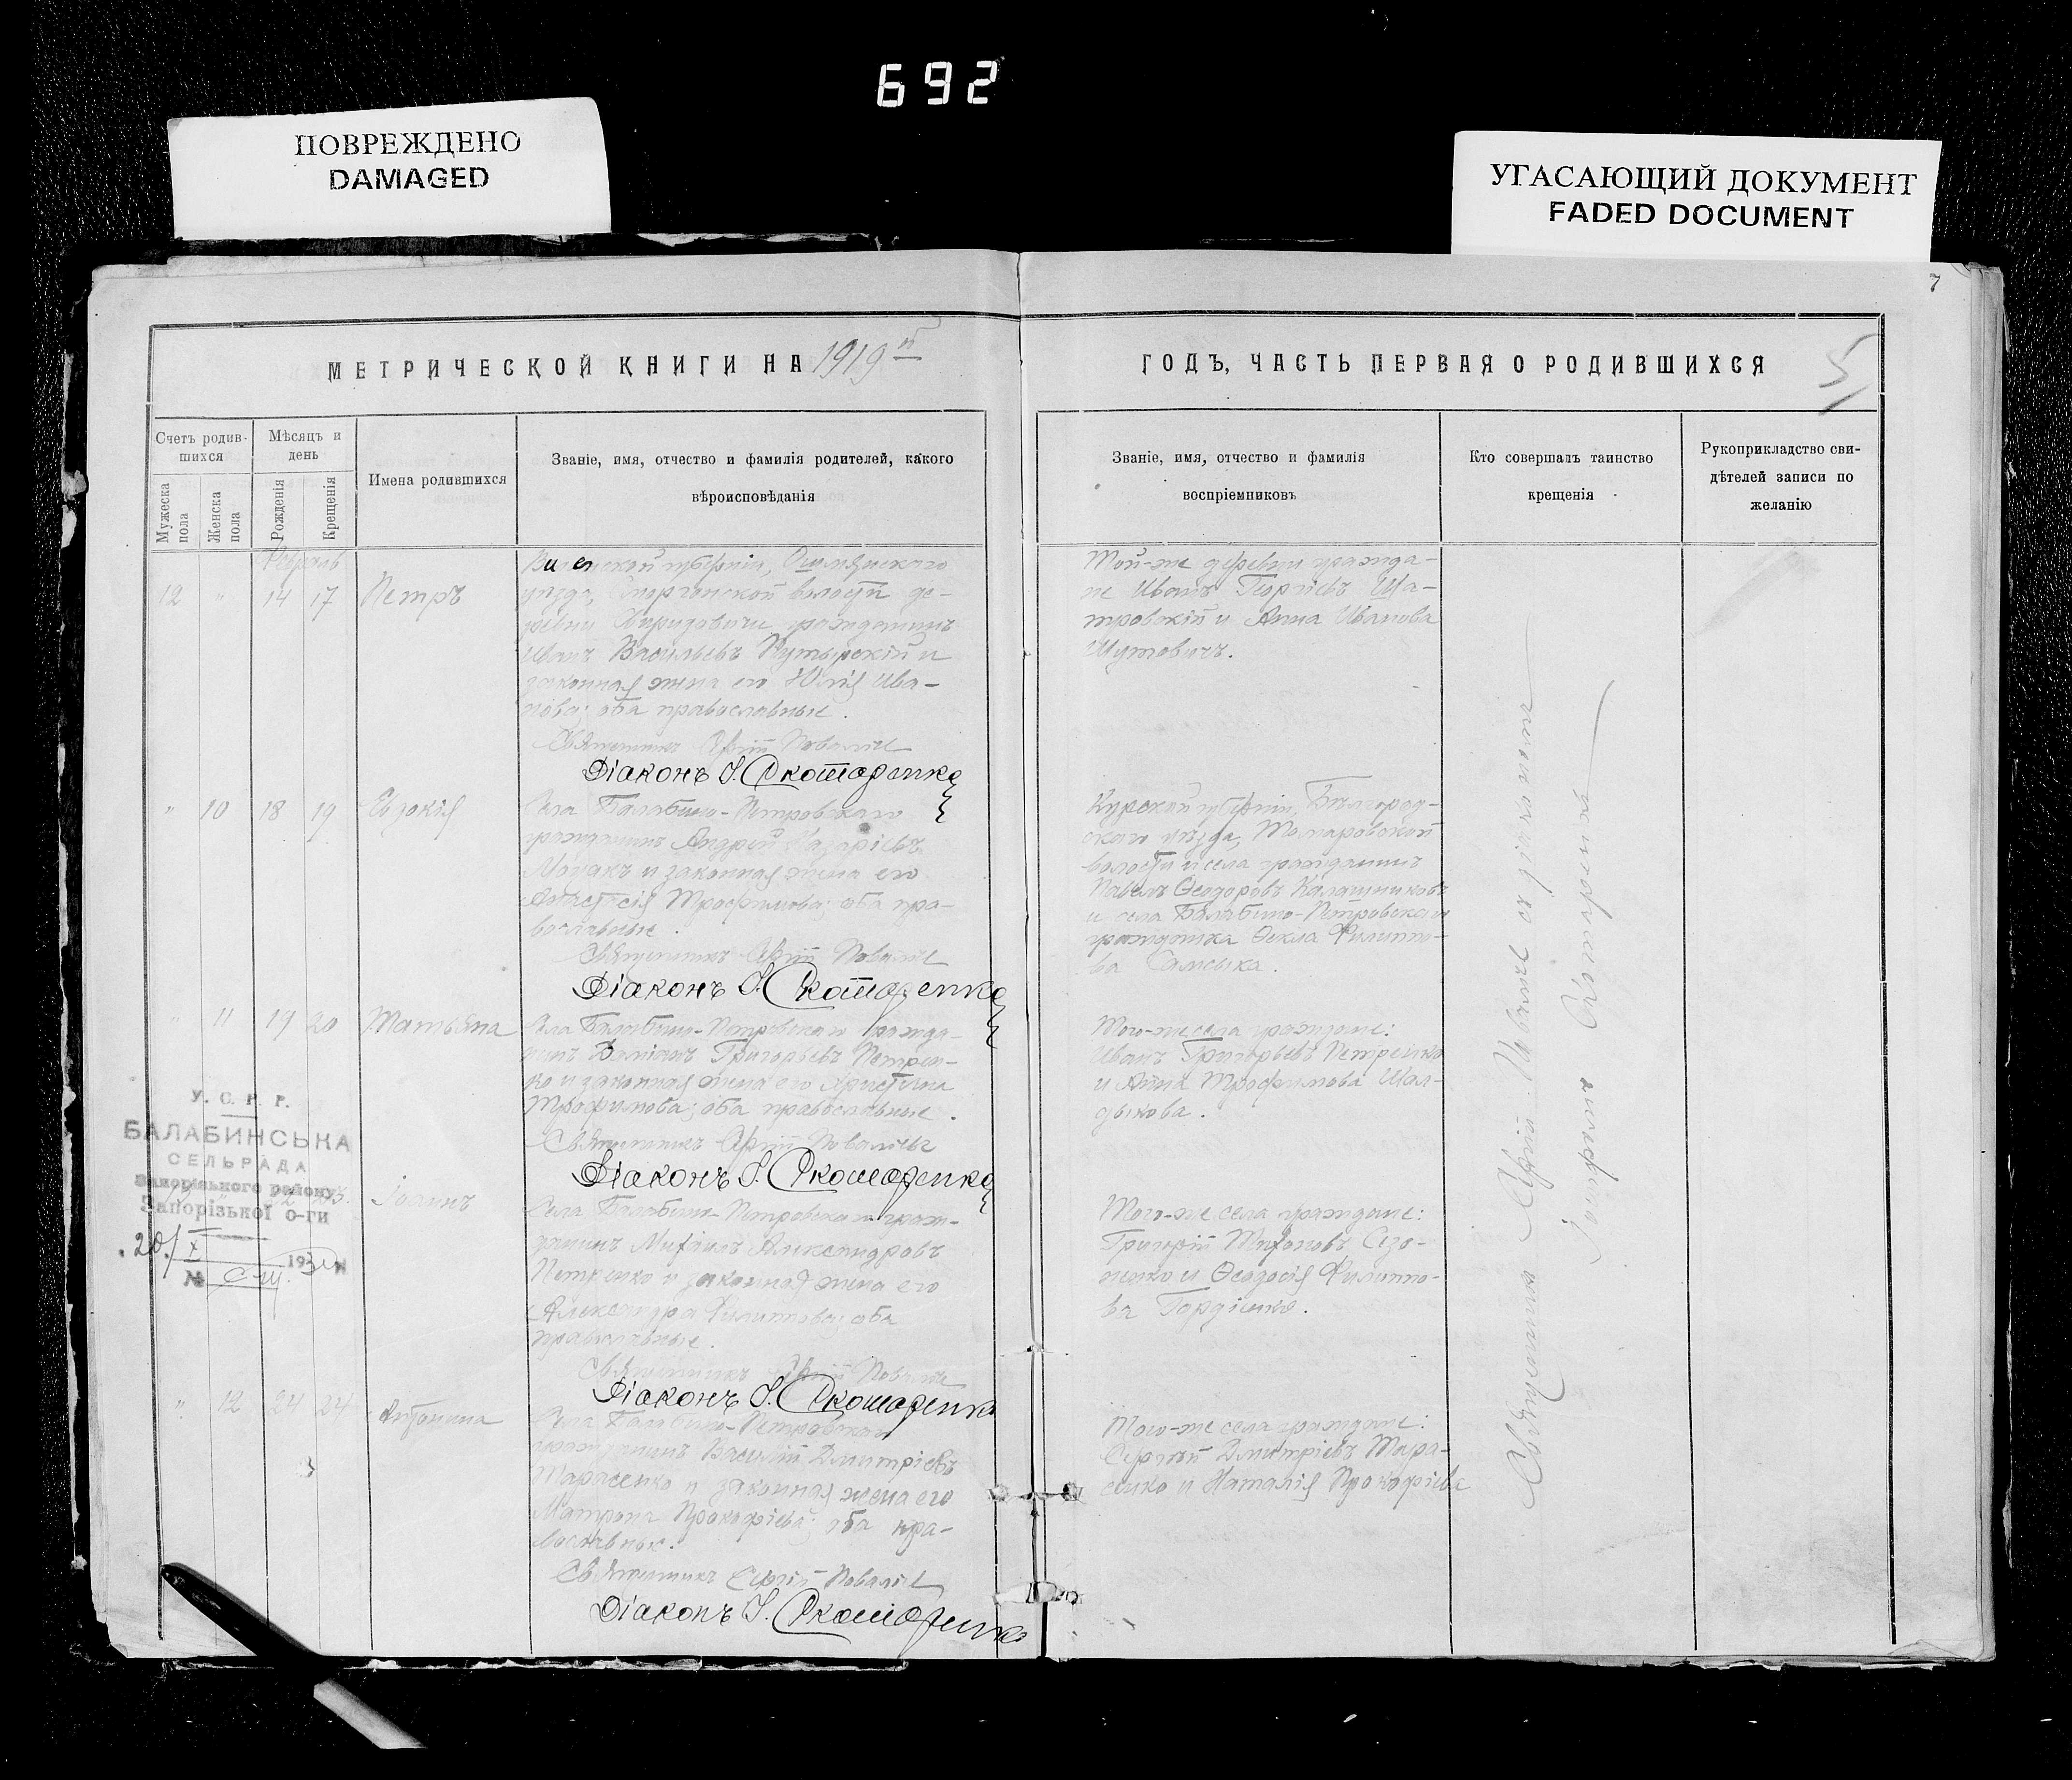 692
ПОВРЕЖДЕНО
DAMAGED
УГАСАЮЩИЙ ДОКУМЕНТ
FADED DOCUMENT
7
МЕТРИЧЕСКОЙ КНИГИ НА 1919 й
ГОДЪ, ЧАСТЬ ПЕРВАЯ О РОДИВШИХСЯ
5
Счетъ родив-
шихся
Мѣсяцъ и
день
Мужеска
пола
Женска
пола
Рожденія
Крещенія
Имена родившихся
Званіе, имя, отчество и фамилія родителей, какого
вѣроисповѣданія
Званіе, имя, отчество и фамилія
воспріемниковъ
Кто совершалъ таинство
крещенія
Рукоприкладство сви-
дѣтелей записи по
желанію
Февраль
12 " 14 17 Петръ
Виленской губерніи, Ошмянскаго
уѣзда, Сморгонской волости де-
ревни гражданинъ
Иванъ Васильевъ и
законная жена его Юлія Ива-
нова; оба православные.
Священникъ Сергій Повалій
Діаконъ І. Скотаренко
Той-же деревни гражда-
не Иванъ Георгіевъ Ша-
тровскій и Анна Иванова
Шутовичъ.
" 10 18 19 Евдокія
Села Балабино-Петровскаго
гражданинъ Андрей Назаріевъ
и законная жена его
Анастасія Трофимова; оба пра-
вославные.
Священникъ Сергій Повалій
Діаконъ І. Скотаренко
Курской губерніи, Бѣлгород-
скаго уѣзда, Томаровской
волости и села гражданинъ
Павелъ Ѳеодоровъ Калашниковъ
и села Балабино-Петровскаго
гражданка Ѳекла Филиппо-
ва
" 11 19 20 Татьяна
Села Балабино-Петровскаго гражда-
нинъ Даміанъ Григорьевъ Петрен-
ко и законная жена его Христина
Трофимова; оба православные.
Священникъ Сергій Повалій
Діаконъ І. Скотаренко
Того-же села граждане:
Иванъ Григорьевъ Петренко
и Анна Трофимова Шал-
дыкова.
У. С. Р. Р.
БАЛАБИНСЬКА
СЕЛЬРАДА
Запорізького району
Запорізької о-ги
20/X 193
№
Іоаннъ
Села Балабино-Петровскаго граж-
данинъ Михаилъ Александровъ
Петренко и законная жена его
Александра Филиппова; оба
православные.
Священникъ Сергій Повалій
Діаконъ І. Скотаренко
Того-же села граждане:
Григорій Тихоновъ Сазо-
ненко и Ѳеодосія Филиппо-
ва Гордіенко.
" 12 24 24 Антонина
Села Балабино-Петровскаго
гражданинъ Василій Дмитріевъ
Тарасенко и законная жена его
Матрона Прокофіева; оба пра-
вославные.
Священникъ Сергій Повалій
Діаконъ І. Скотаренко
Того-же села граждане:
Сергѣй Дмитріевъ Тара-
сенко и Наталія Прокофіева
Священникъ Сергій Повалій съ діакономъ
Скотаренко